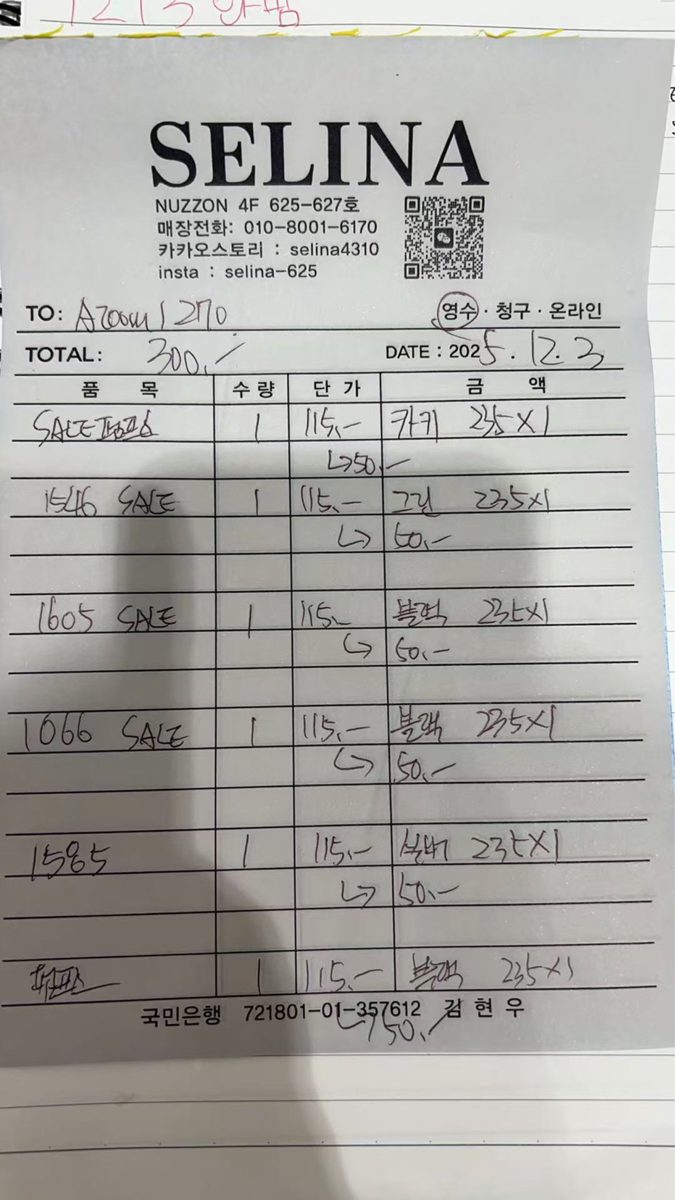 1213
SELINA
NUZZON 4F 625-627호
매장전화: 010-8001-6170
카카오스토리 : selina4310
insta : selina-625
TO: Azoom1270 영수 · 청구 · 온라인
TOTAL: 300.- DATE : 2025. 12. 3
품 목 수 량 단 가 금 액
SALE 펌프스 1 115.- 카키 235X1
↳50.-
1546 SALE 1 115.- 그린 235X1
↳ 50.-
1605 SALE 1 115.- 블랙 235X1
↳ 50.-
1066 SALE 1 115.- 블랙 235X1
↳ 50.-
1585 1 115.- 실버 235X1
↳ 50.-
펌프스 1 115.- 블랙 235X1
국민은행 721801-01-357612 김 현 우
↳50.-